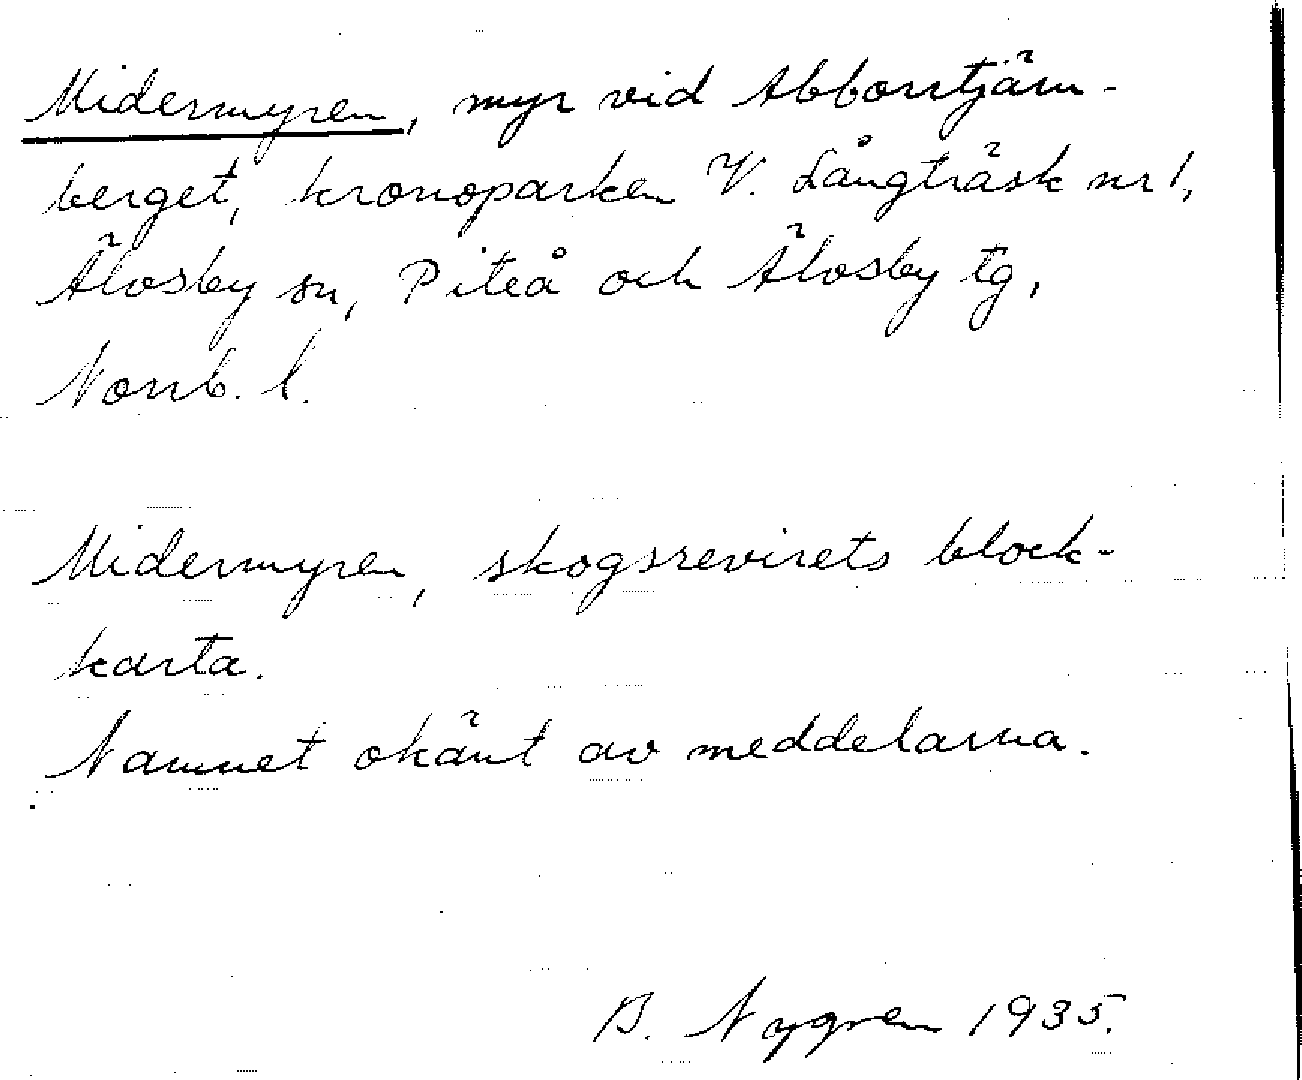 Midermyren, myr vid Abborrtjärn-
berget, kronoparken V. Långträsk nr 1,
Älvsby sn, Piteå och Älvsby tg,
Norrb. l.
Midermyren, skogsrevirets block-
karta.
Namnet okänt av meddelarna.
B. Nygren 1935.